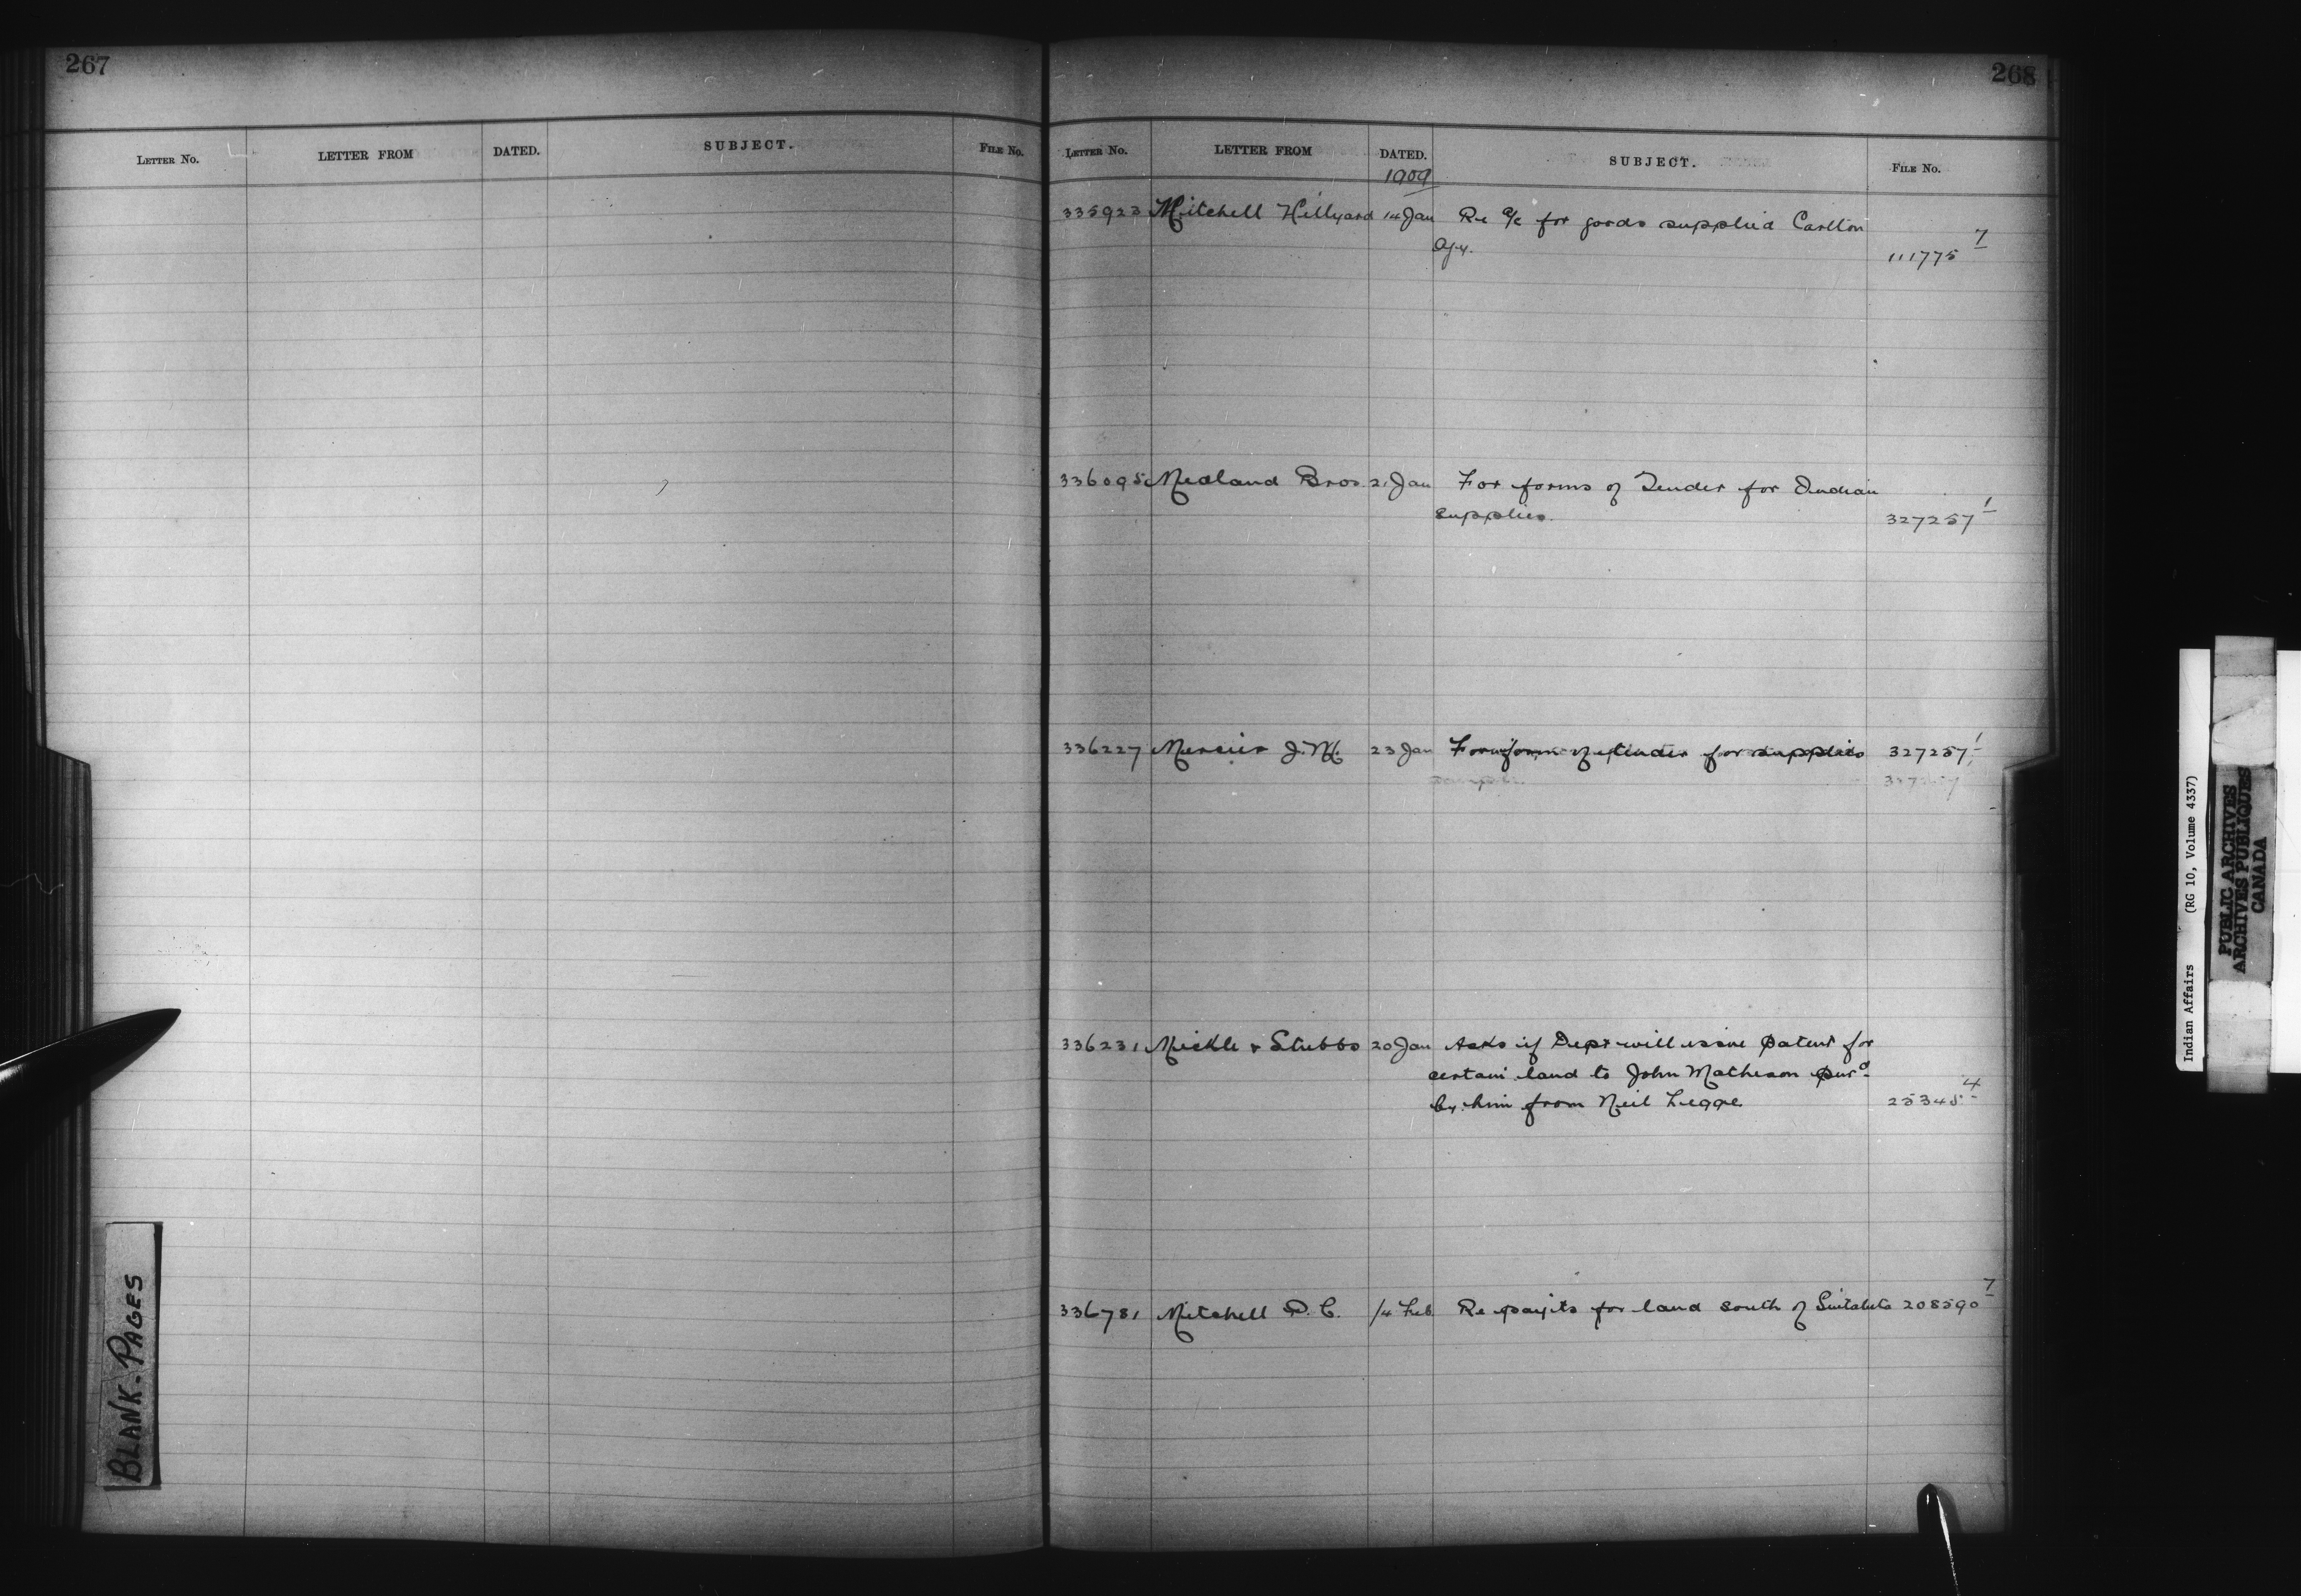 267
LETTER NO. LETTER FROM DATED. SUBJECT. FILE NO.
BLANK-PAGES
268
LETTER NO. LETTER FROM DATED. SUBJECT. FILE NO.
1909
335923 Mitchell Hillyard 14 Jan Re a/c for goods supplied Carlton
Agy. 111775 7
336095 Medland Bros. 21 Jan For forms of Tender for Indian
supplies. 327257 1
336227 Mercier J. M. 23 Jan For form of tender for supplies 327257 1
336231 Mickle & Stubbs 20 Jan Asks if Dept will issue patent for
certain land to John Matheson purd
by him from Neil Legge 25345 4
336781 Mitchell D. C. 14 Feb Re payts for land south of 208590 7
Indian Affairs (RG 10, Volume 4337)
PUBLIC ARCHIVES
ARCHIVES PUBLIQUES
CANADA